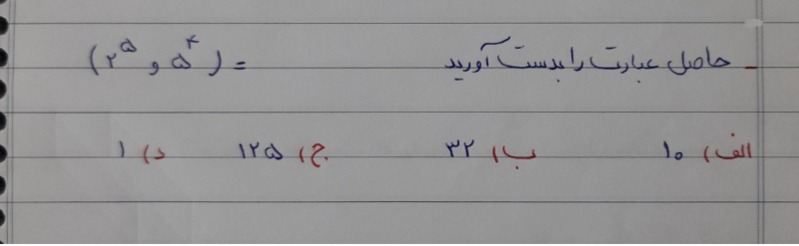 - حاصل عبارت را بدست آورید (۲^۵ و ۵^۴) =
الف) ۱۰ ب) ۳۲ ج) ۱۲۵ د) ۱